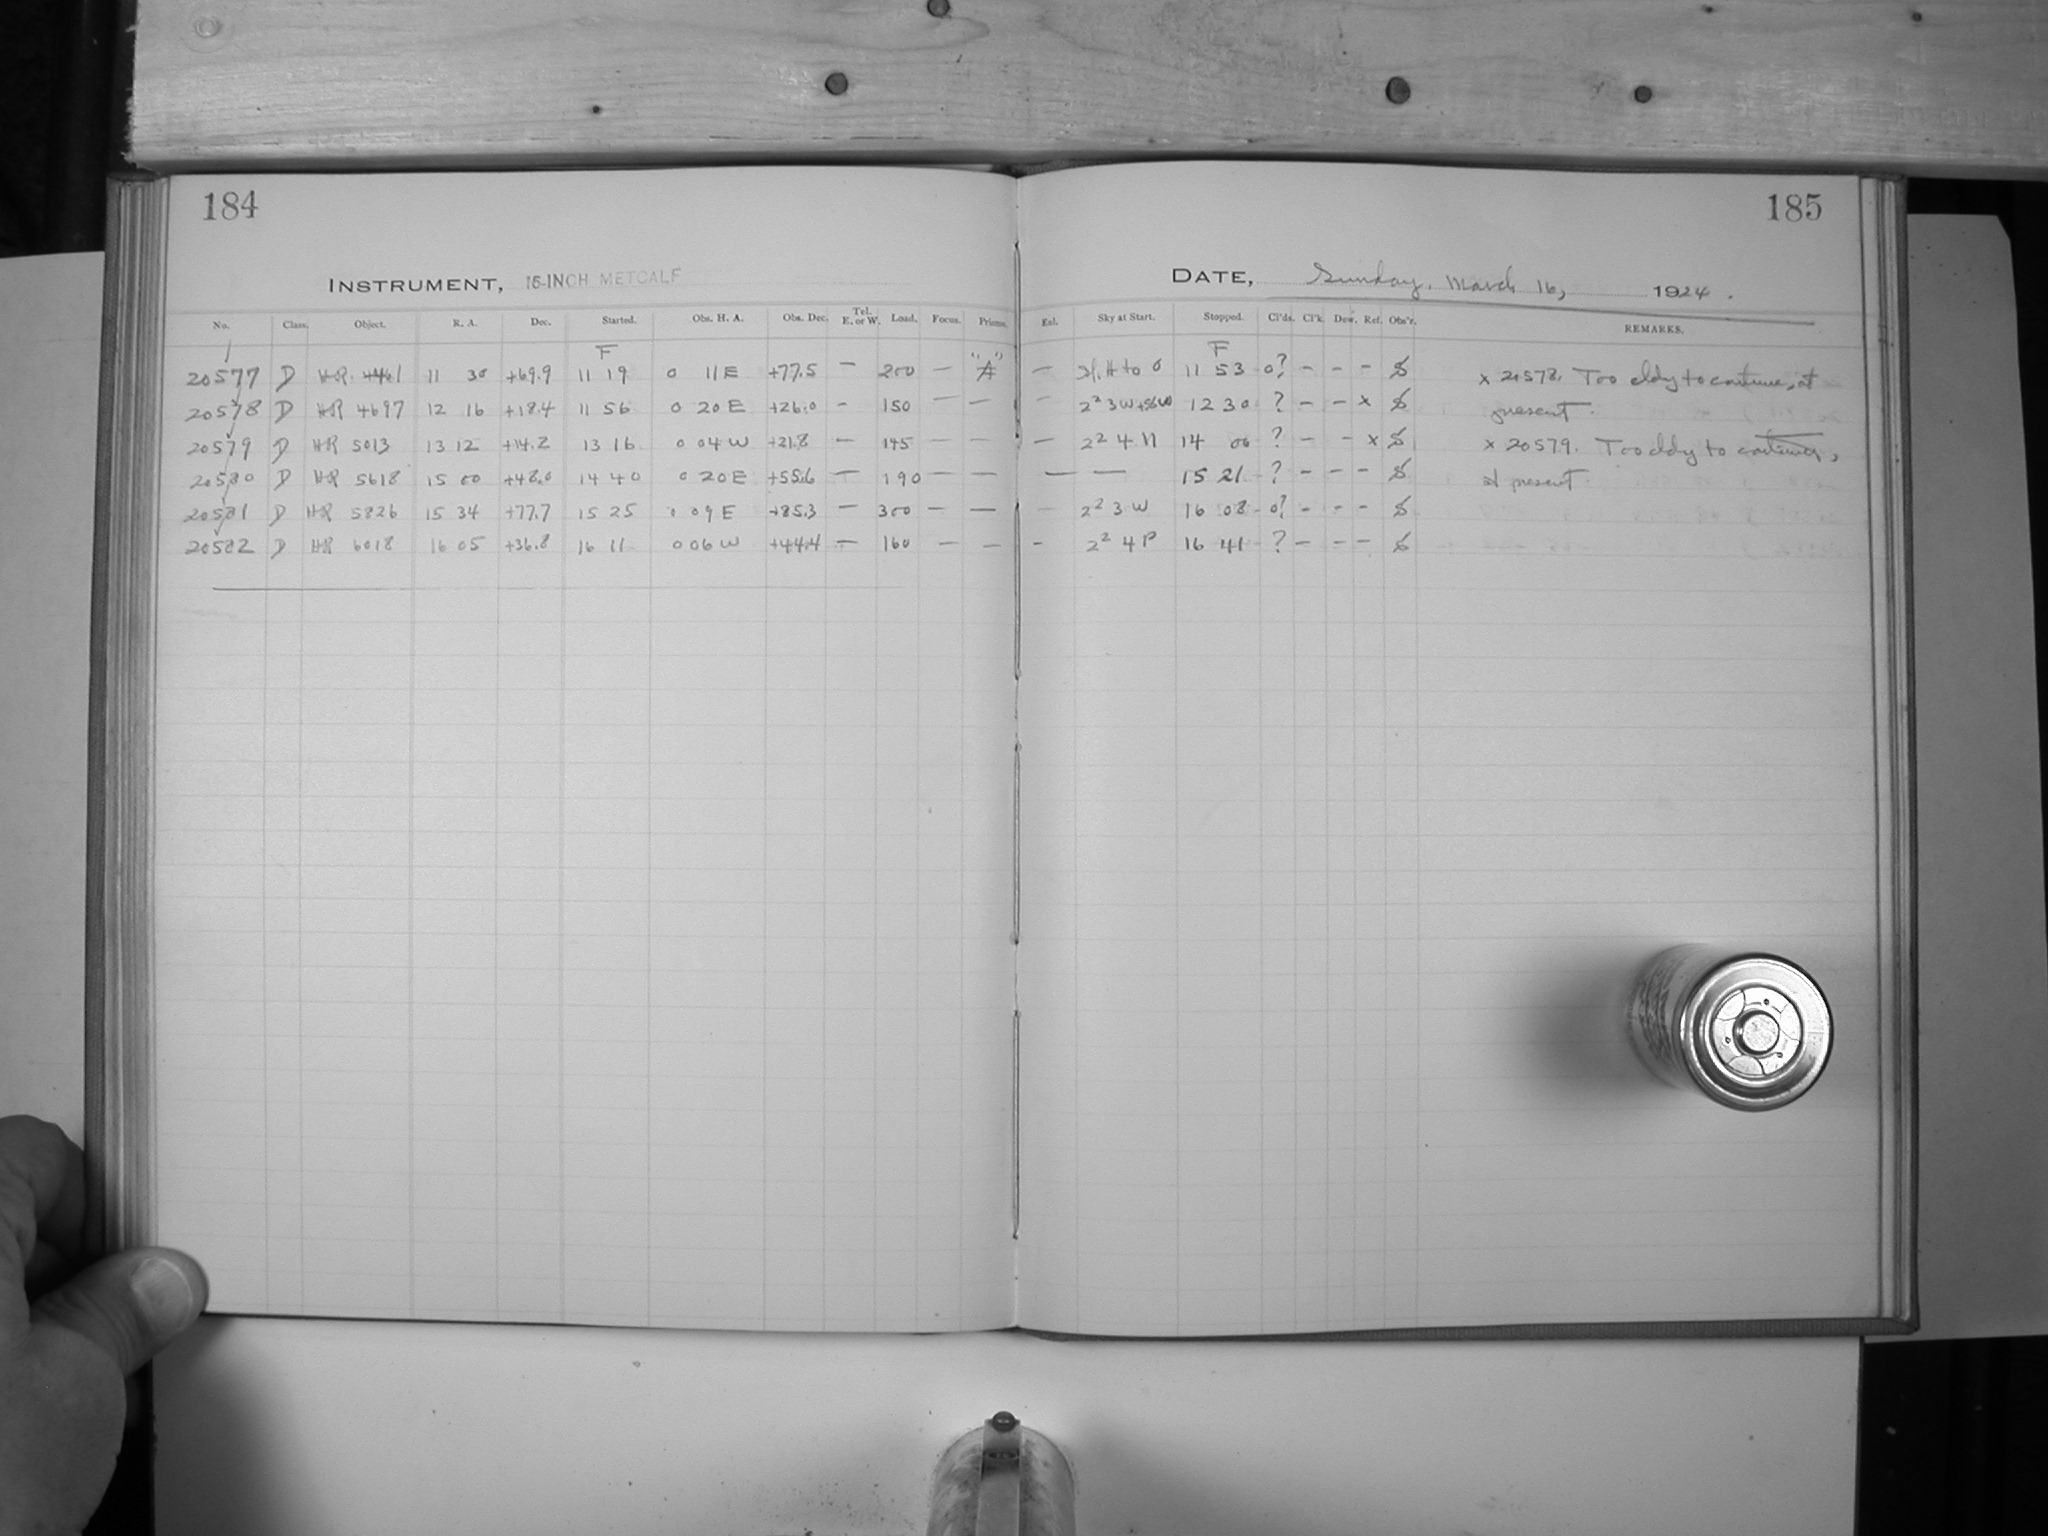 184
185
INSTRUMENT, 16-INCH METCALF
DATE, Sunday, March 16, 1924.
No. Class. Object. R. A. Dec. Started. Obs. H. A. Obs. Dec. Tel. E. or W. Load. Focus. Prisms. Exl. Sky at Start. Stopped. Cl'ds. Cl'k. Dew. Ref. Obs'r. REMARKS.
F "A" F
20577 D HR 4461 11 30 +69.9 11 19 0 11 E +77.5 — 200 — A — H to 0 11 53 0? – – – x 20578. Too cldy to continue, at
20578 D HR 4697 12 16 +18.4 11 56 0 20 E +26.0 – 150 — — — 2² 3 W+SW 12 30 ? – – x present.
20579 D HR 5013 13 12 +14.2 13 16 0 04 W +21.8 — 145 — — — 2² 4 N 14 06 ? – – x x 20579. Too cldy to continue,
20580 D HR 5618 15 00 +48.0 14 40 0 20 E +55.6 — 190 — — — — 15 21 ? – – – at present.
20581 D HR 5826 15 34 +77.7 15 25 0 09 E +85.3 — 300 – — – 2² 3 W 16 08 0? – – –
20582 D HR 6018 16 05 +36.8 16 11 0 06 W +44.4 — 160 – — – 2² 4 P 16 41 ? – – –